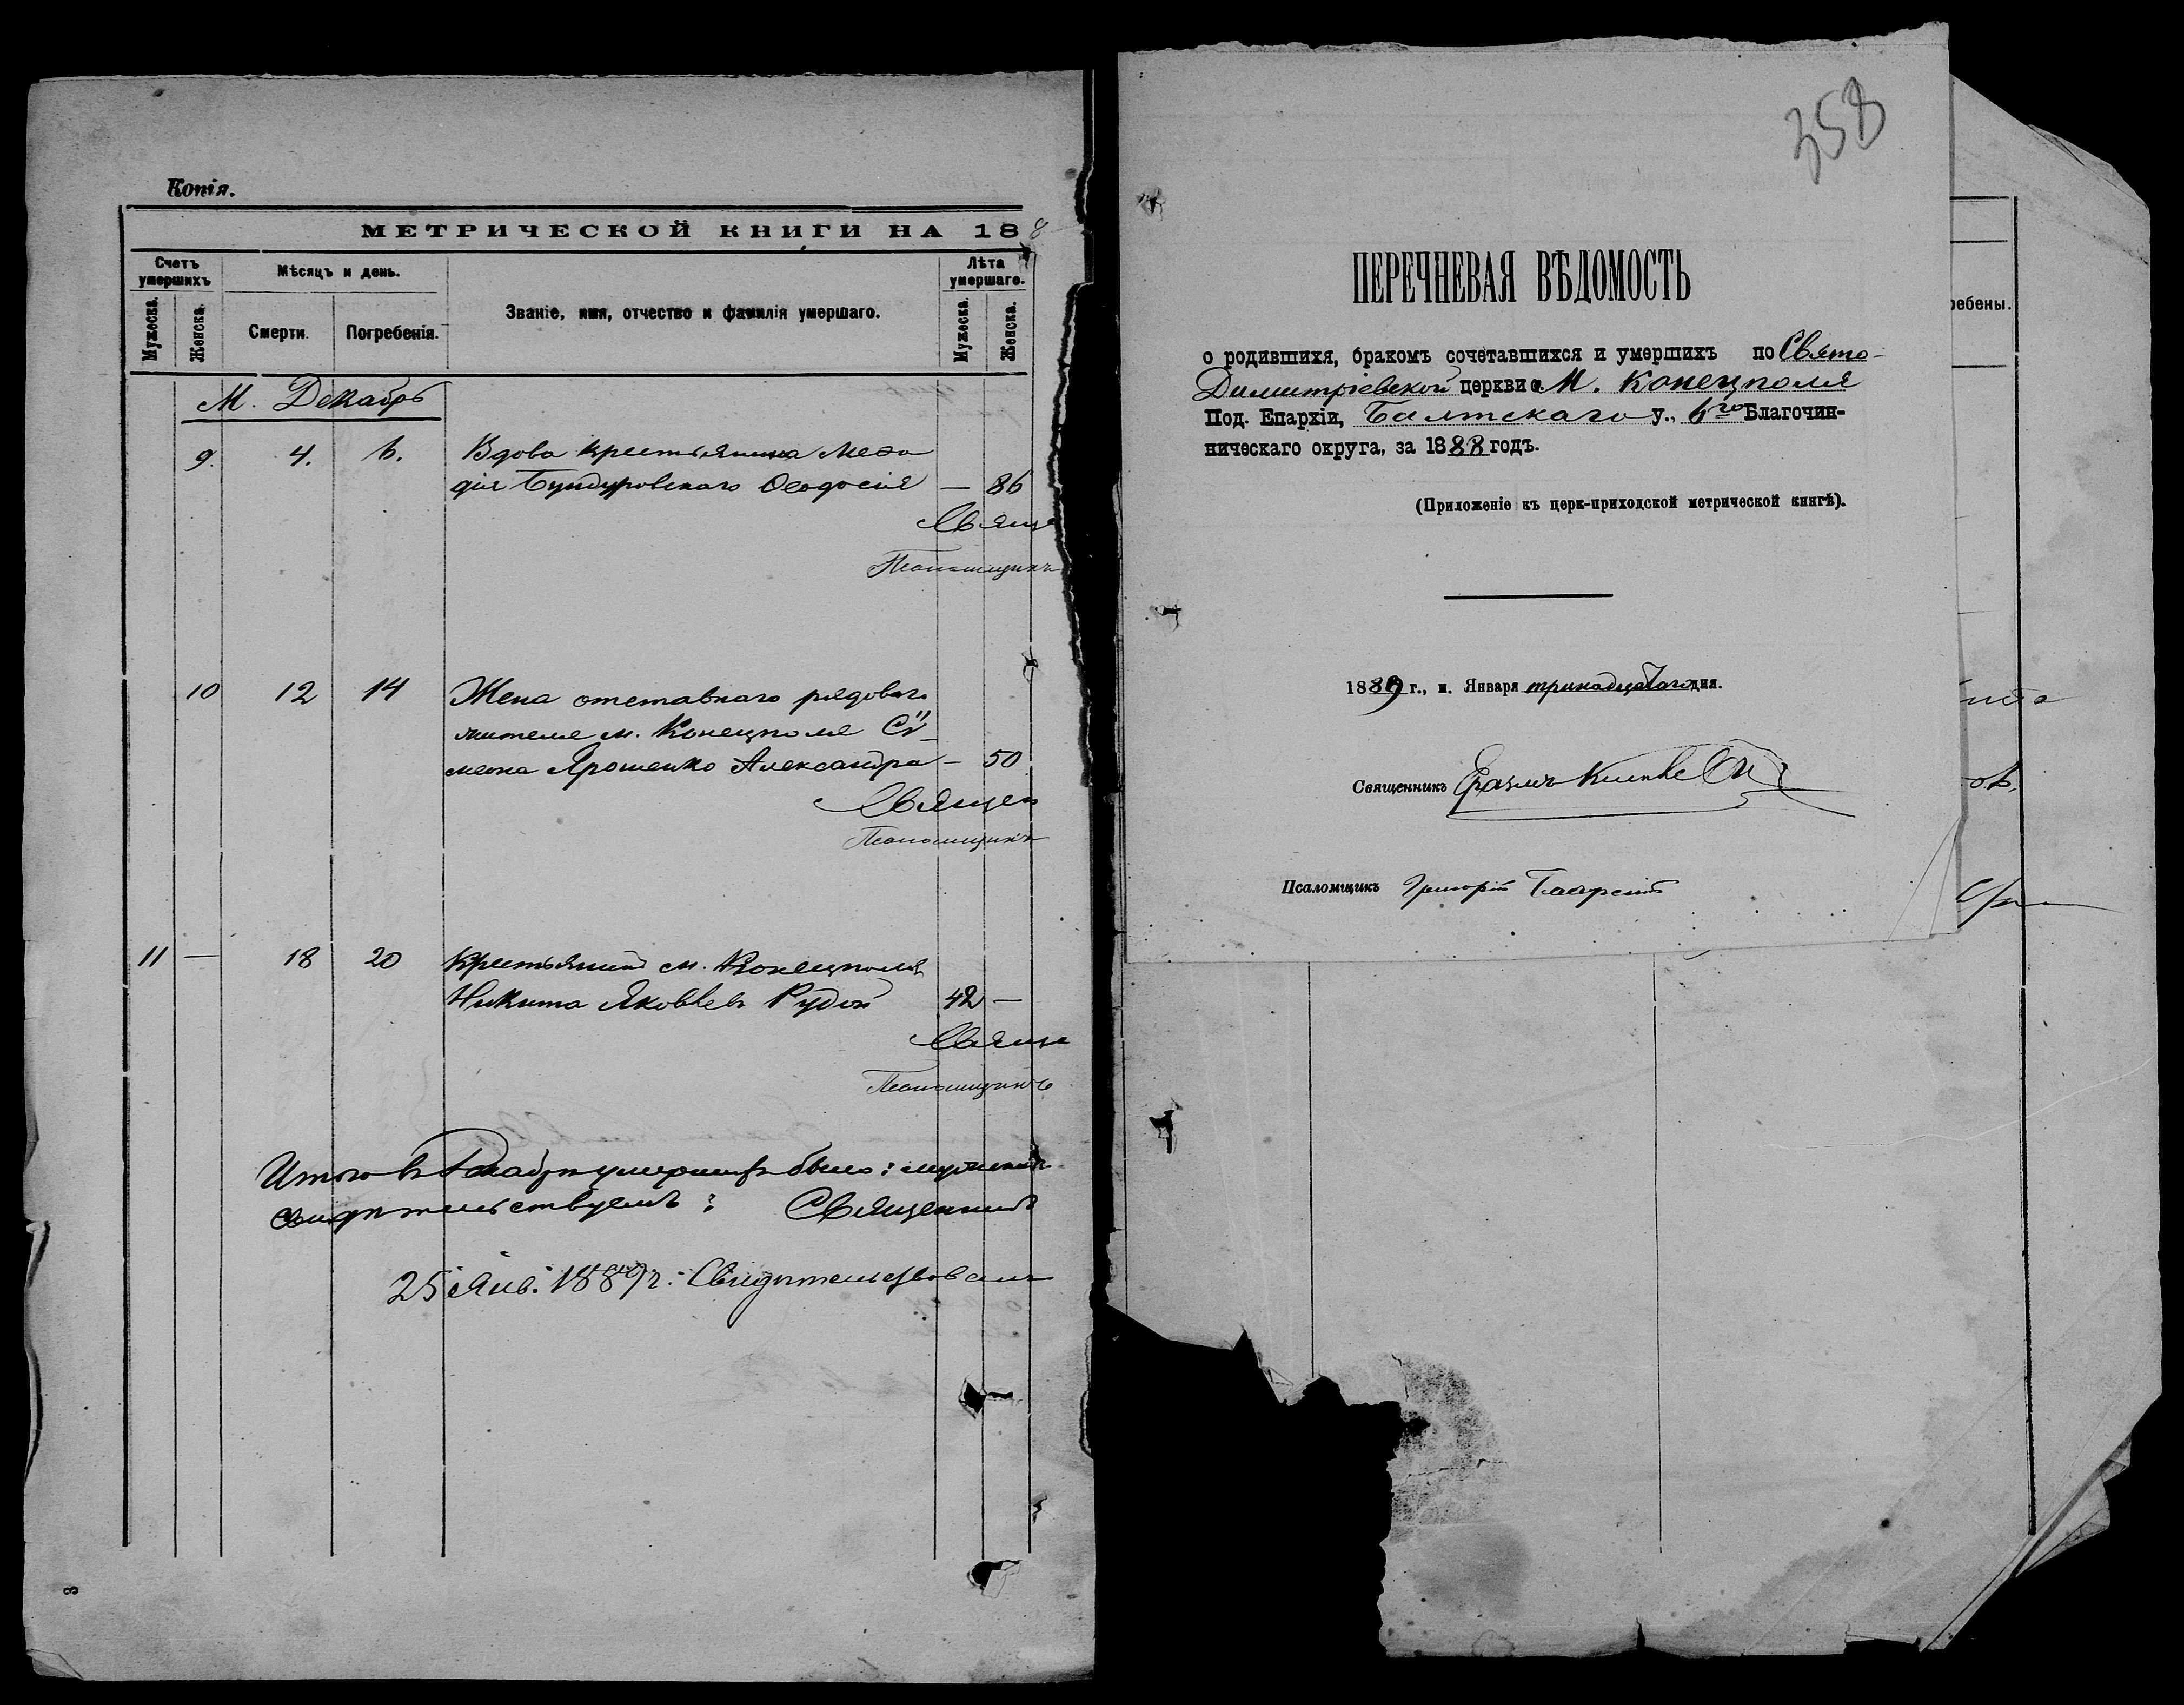 Копія.
МЕТРИЧЕСКОЙ КНИГИ НА 188
Счетъ умершихъ
Мѣсяцъ и день.
Званіе, имя, отчество и фамилія умершаго.
Лѣта умершаго.
Мужеска.
Женска.
Смерти.
Погребенія.
Мужеска.
Женска.
М. Декабрь
9. 4. 6. Вдова крестьянина Мефо
дія Бундуровскаго Ѳеодосія — 86
Свяще
Псаломщикъ
10 12 14 Жена отставнаго рядоваго
жителя м. Конецполя Си
меона Ярошенко Александра — 50
Священ
Псаломщикъ
11 — 18 20 Крестьянинъ м. Конецполя
Никита Яковлевъ Рудой 42 —
Свяще
Псаломщикъ
Итого въ Декабрѣ умершихъ было:
свидѣтельствуемъ: Священникъ
25 Янв. 1889 г. Свидѣтельствовалъ
3
358
ПЕРЕЧНЕВАЯ ВѢДОМОСТЬ
о родившихя, бракомъ сочетавшихся и умершихъ по Свято-
Димитріевской церкви М. Конецполя
Под. Епархіи, Балтскаго у., 6го Благочин-
ническаго округа, за 1888 годъ.
(Приложеніе къ церк-приходской метрической книгѣ).
1889 г., м. Января тринадцатаго дня.
Священникъ Еразмъ
Псаломщикъ Григорій
ребены.